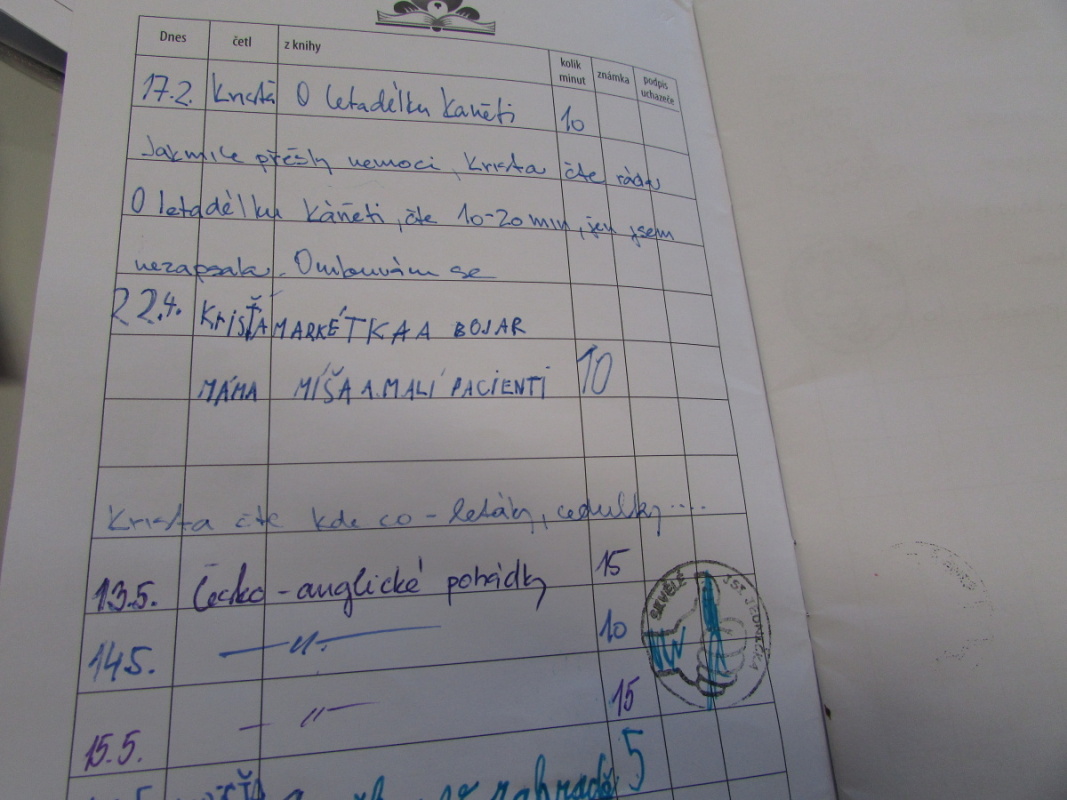 Dnes četl z knihy kolik minut známka podpis uchazeče
17.2. Krista O letadélku Káněti 10
Jakmile přešly nemoci, Krista čte ráda
O letadélku Káněti, čte 10-20 min, jen jsem
nezapsala. Omlouvám se
22.4. KRIŠŤA MARKÉTKA A BOJAR
MÁMA MÍŠA A MALÍ PACIENTI 10
Krista čte kde co - letáky, cedulky....
13.5. Česko-anglické pohádky 15
14.5. —〃— 10
15.5. —〃— 15
SKVĚLE JSI JEDNIČKA
zahradě 5